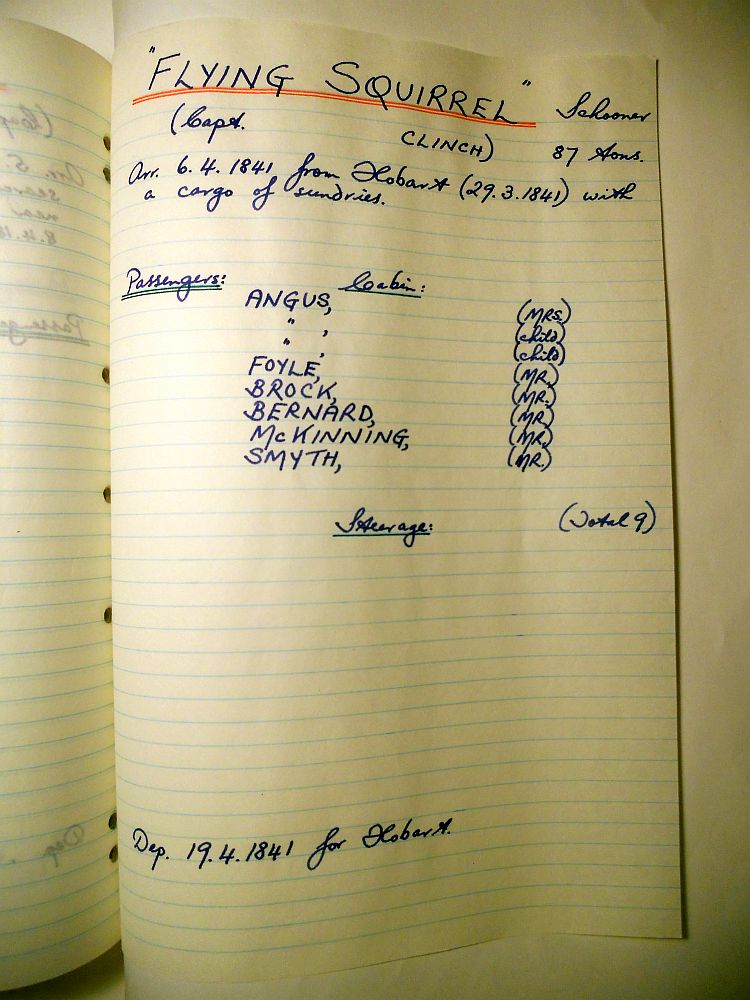 "FLYING SQUIRREL" Schooner
(Capt. CLINCH) 87 tons.
Arr. 6.4.1841 from Hobart (29.3.1841) with
a cargo of sundries.
Passengers: Cabin:
ANGUS, (MRS.)
" , (child)
" , (child)
FOYLE, (MR.)
BROCK, (MR.)
BERNARD, (MR.)
McKINNING, (MR.)
SMYTH, (MR.)
Steerage: (Total 9)
Dep. 19.4.1841 for Hobart.